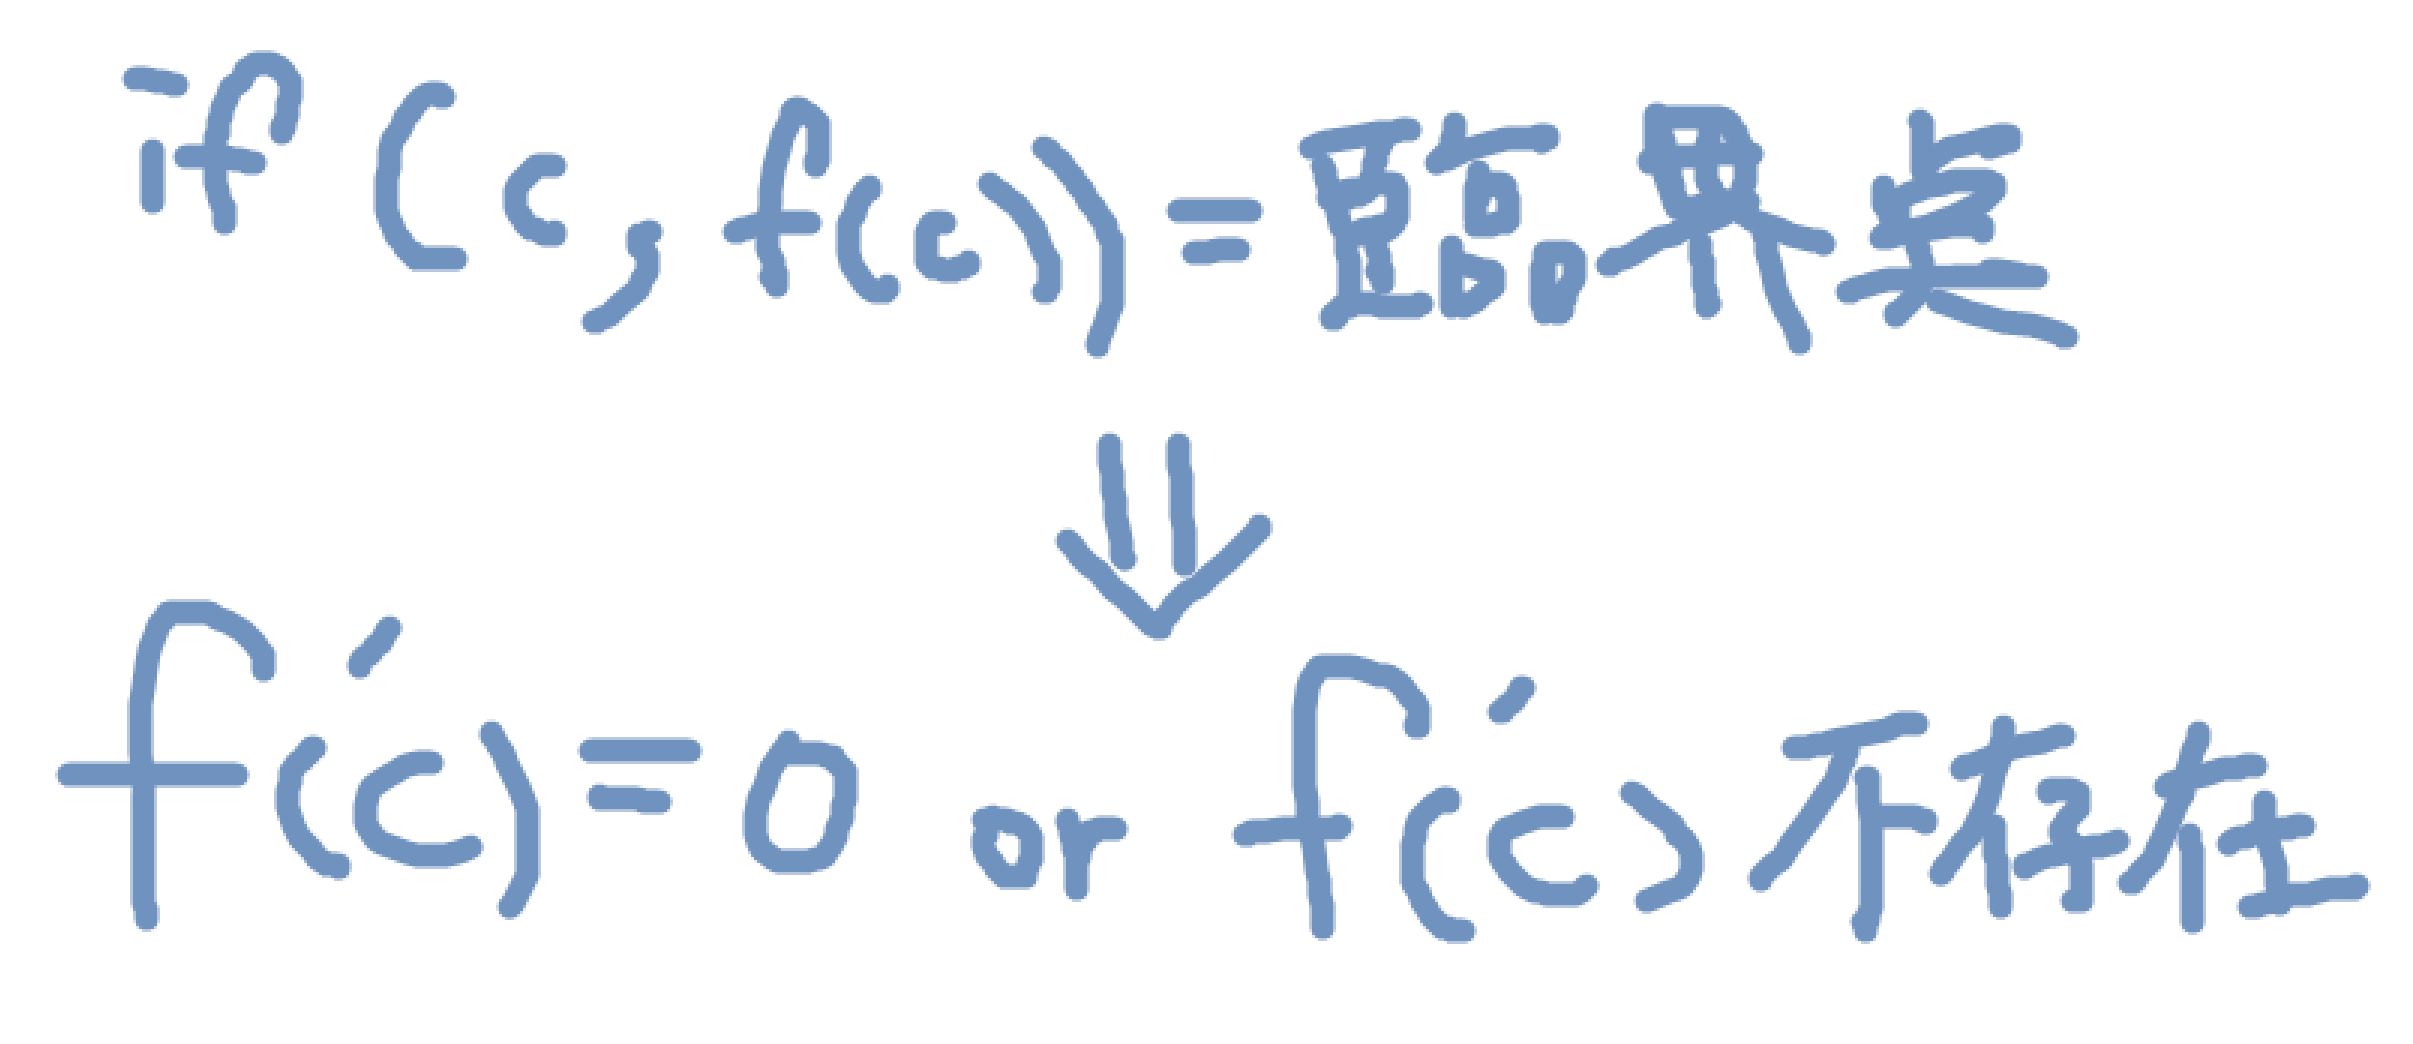 if (c, f(c)) = 臨界点
⇓
f'(c) = 0 or f'(c) 不存在